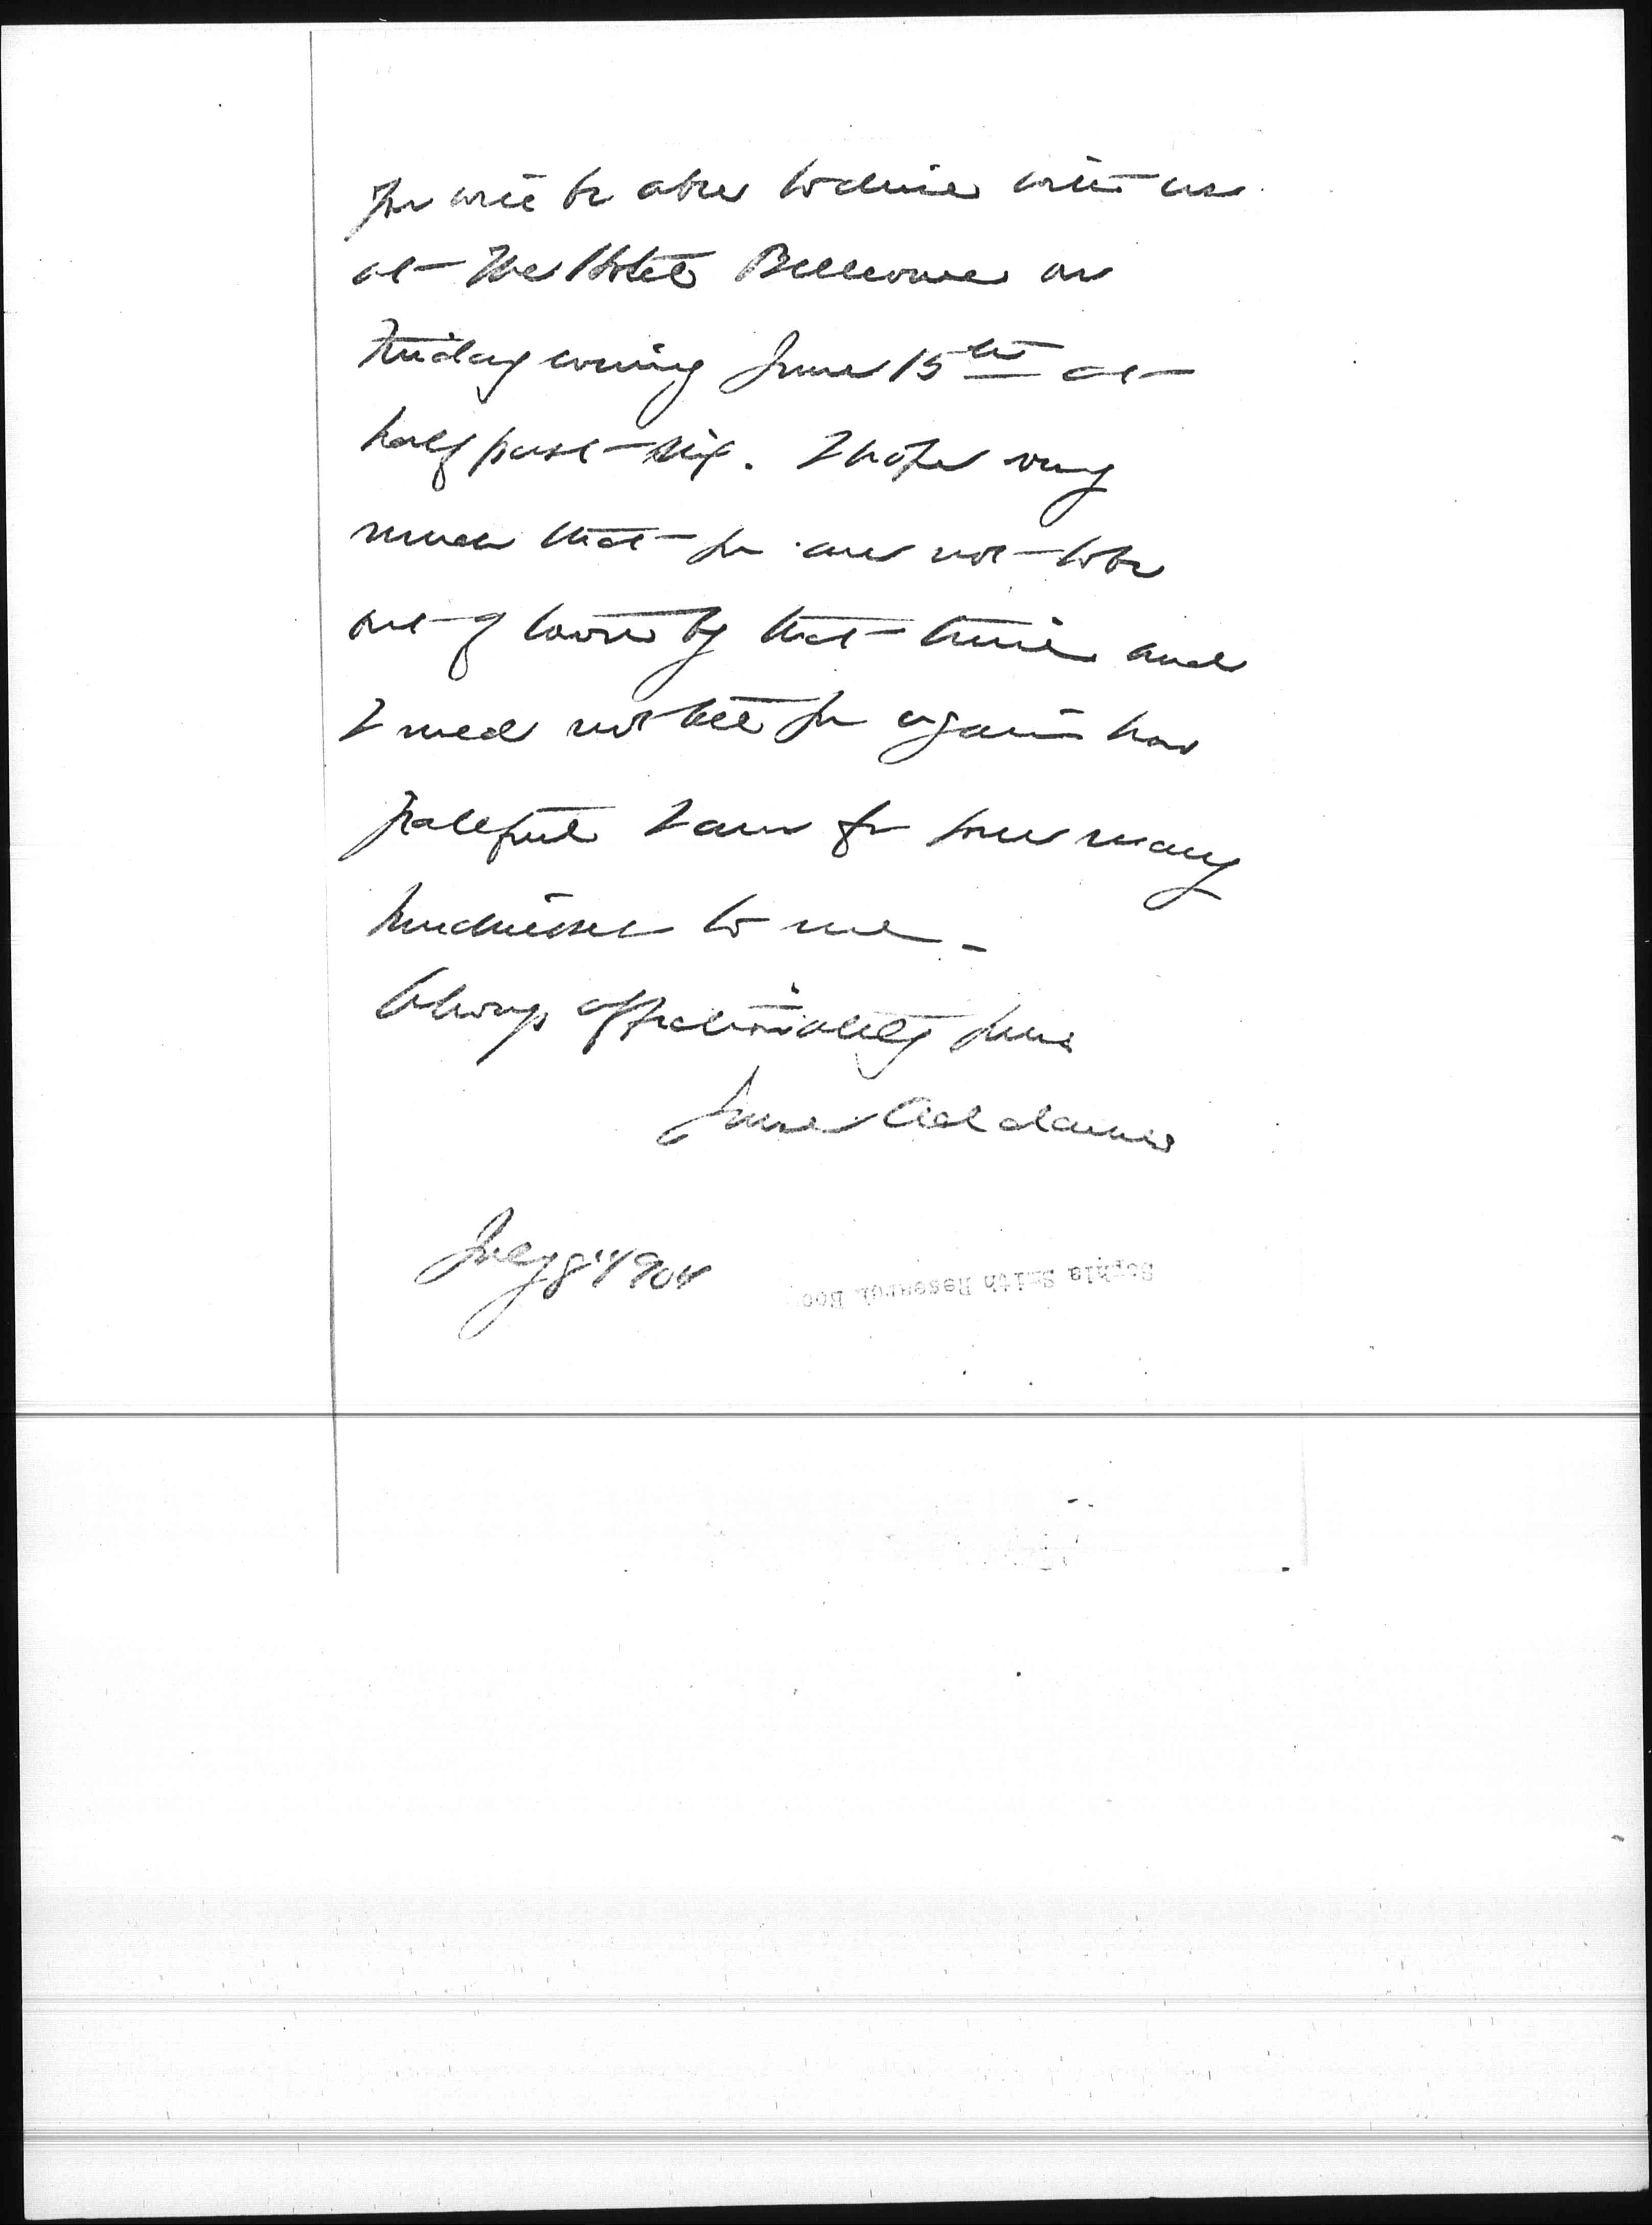 you will be able to dine with us
at The Hotel Bellevue on
Friday evening June 15th at
half past six. I hope very
much that you are not to be
out of town by that time and
I need not tell you again how
grateful I am for your many
kindnesses to me –
Always affectionately yours
Jane Addams
July 8" 1904
Sophia Smith Research Roo